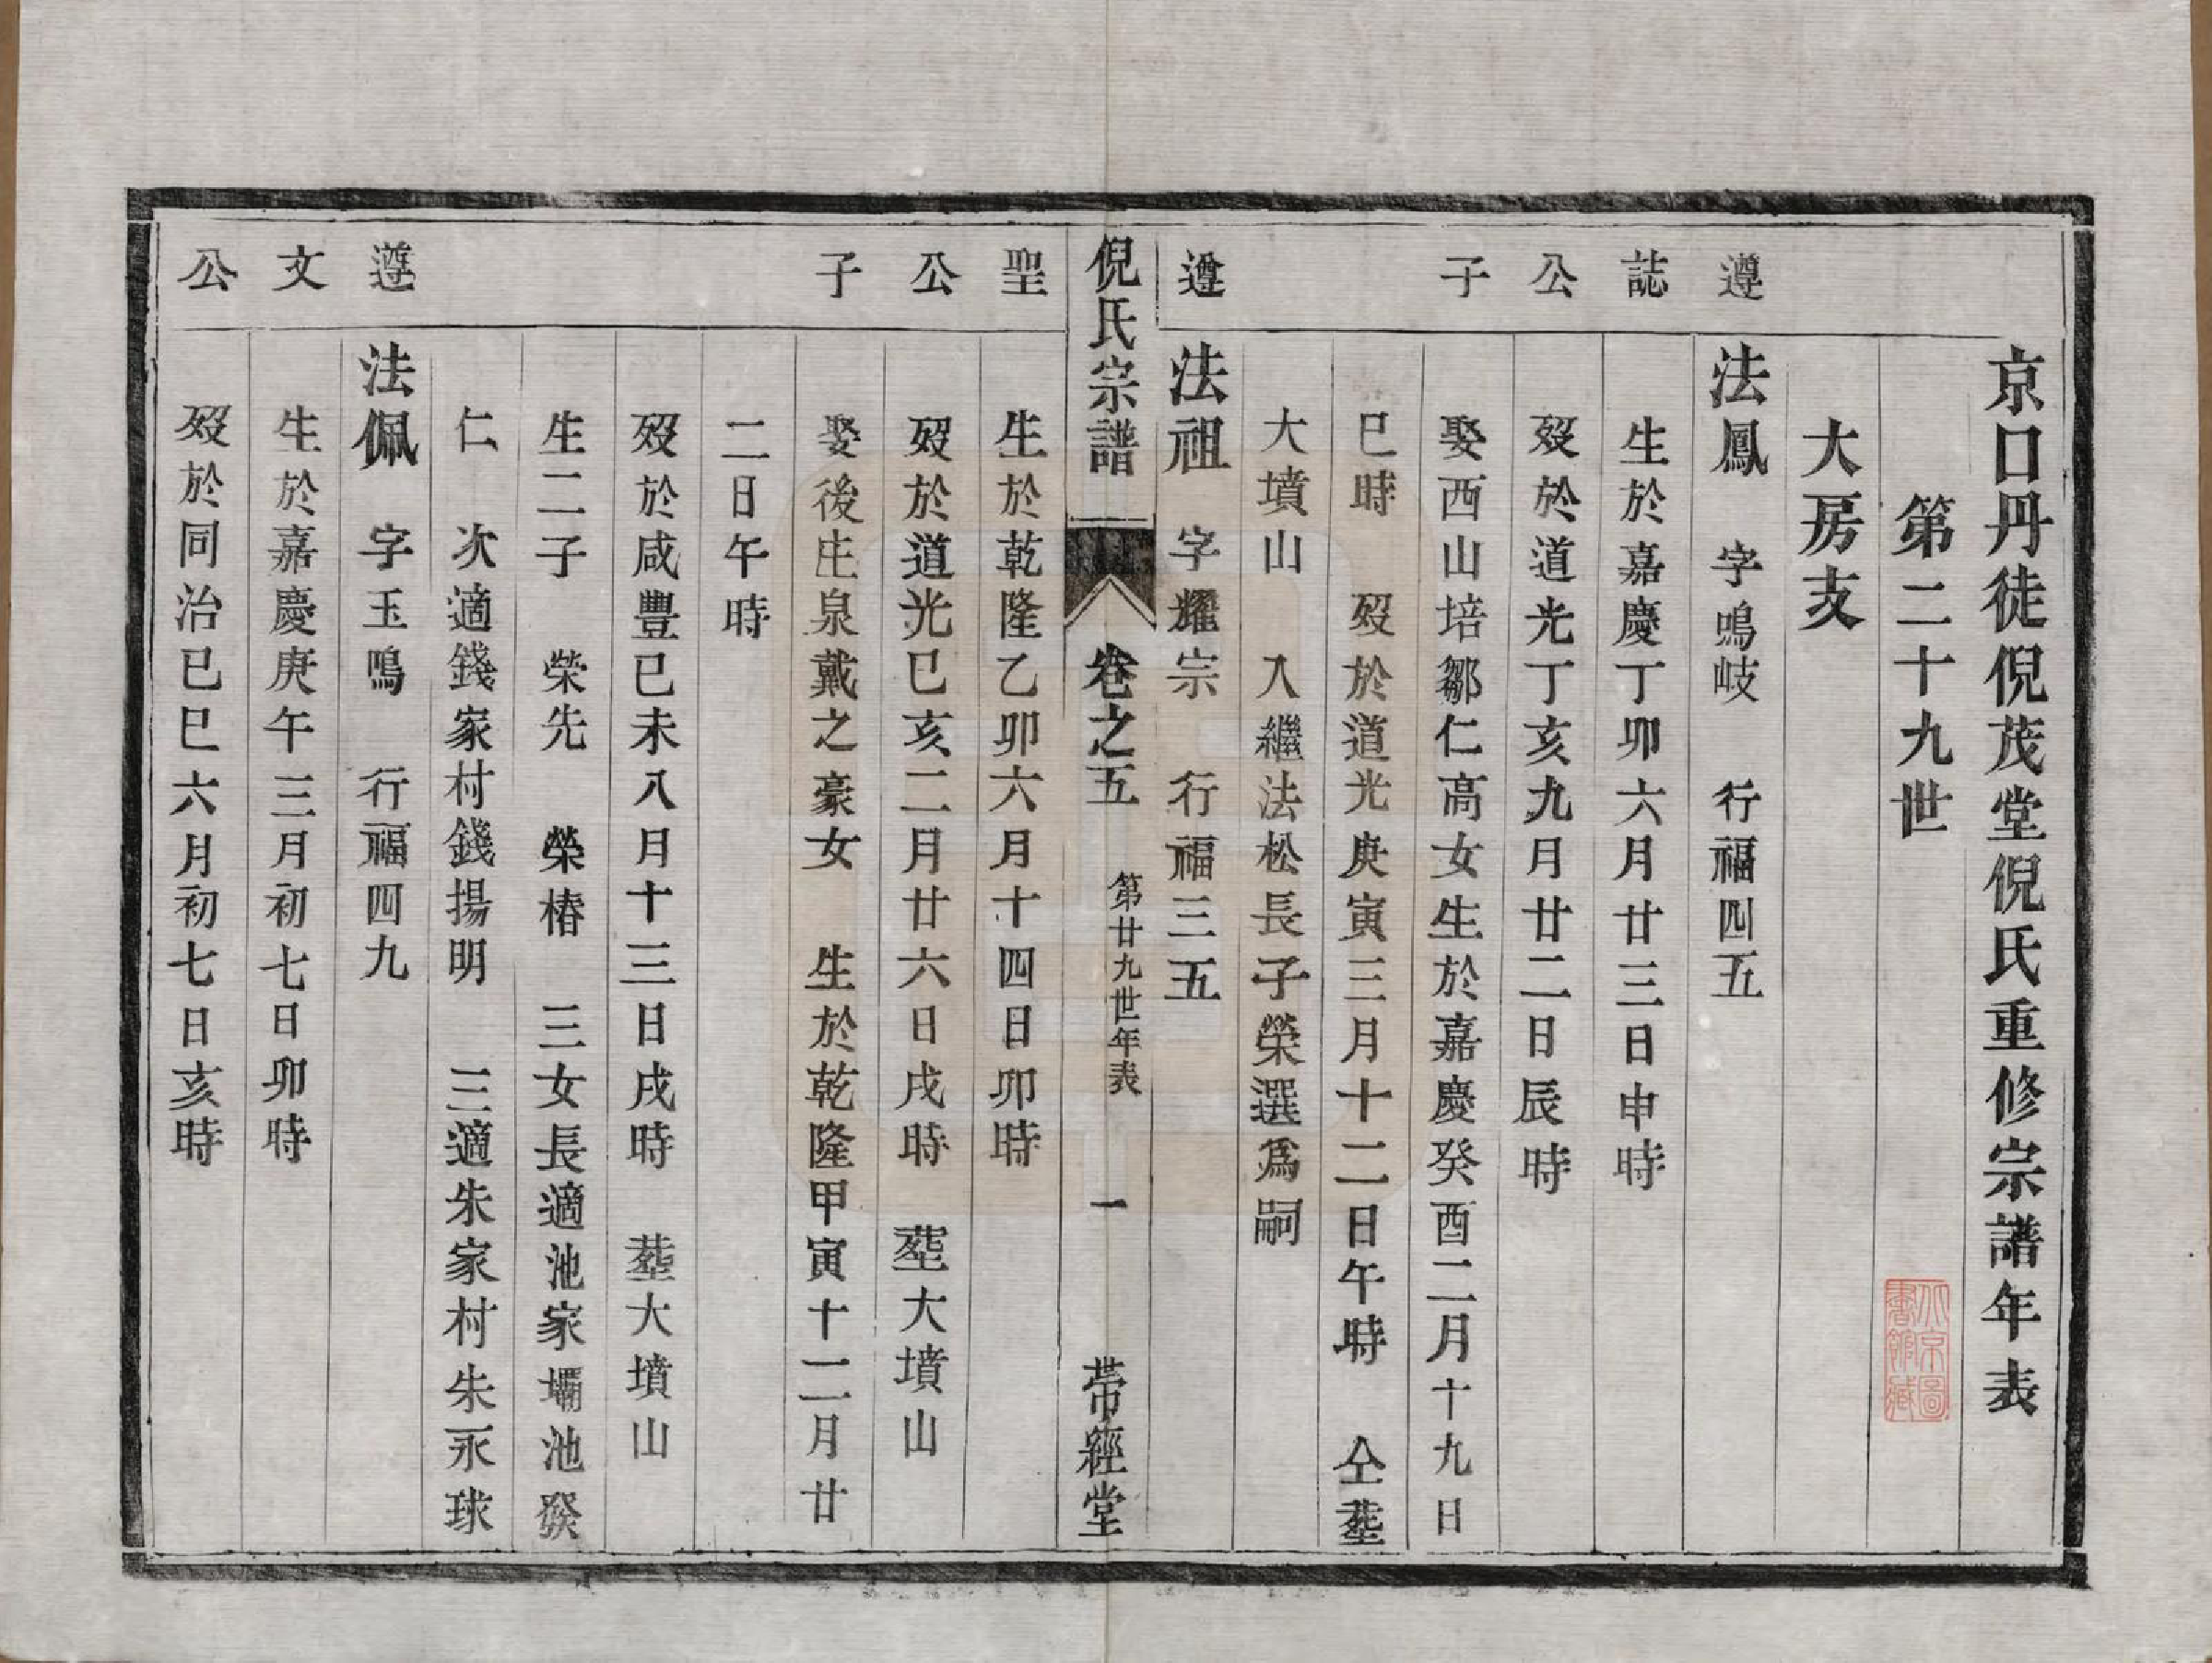 京口丹徒倪茂堂倪氏重修宗譜年表
第二十九世
大房支
遵
法鳳　字鳴岐　行福四五
誌
生於嘉慶丁卯六月廿三日申時
公
歿於道光丁亥九月廿二日辰時
子
娶西山培鄒仁高女生於嘉慶癸酉二月十九日
巳時　歿於道光庚寅三月十二日午時　仝塟
大墳山　入繼法松長子榮選爲嗣
遵
法祖　字耀宗　行福三五
倪氏宗譜　卷之五　第廿九世年表　一　帶經堂
聖
生於乾隆乙卯六月十四日卯時
公
歿於道光己亥二月廿六日戌時　塟大墳山
子
娶後庄泉戴之豪女　生於乾隆甲寅十二月廿
二日午時
歿於咸豐己未八月十三日戌時　塟大墳山
生二子　榮先　榮椿　三女長適池家壩池癸
仁　次適錢家村錢揚明　三適朱家村朱永球
遵
法佩　字玉鳴　行福四九
文
生於嘉慶庚午三月初七日卯時
公
歿於同治己巳六月初七日亥時
北京圖書館藏